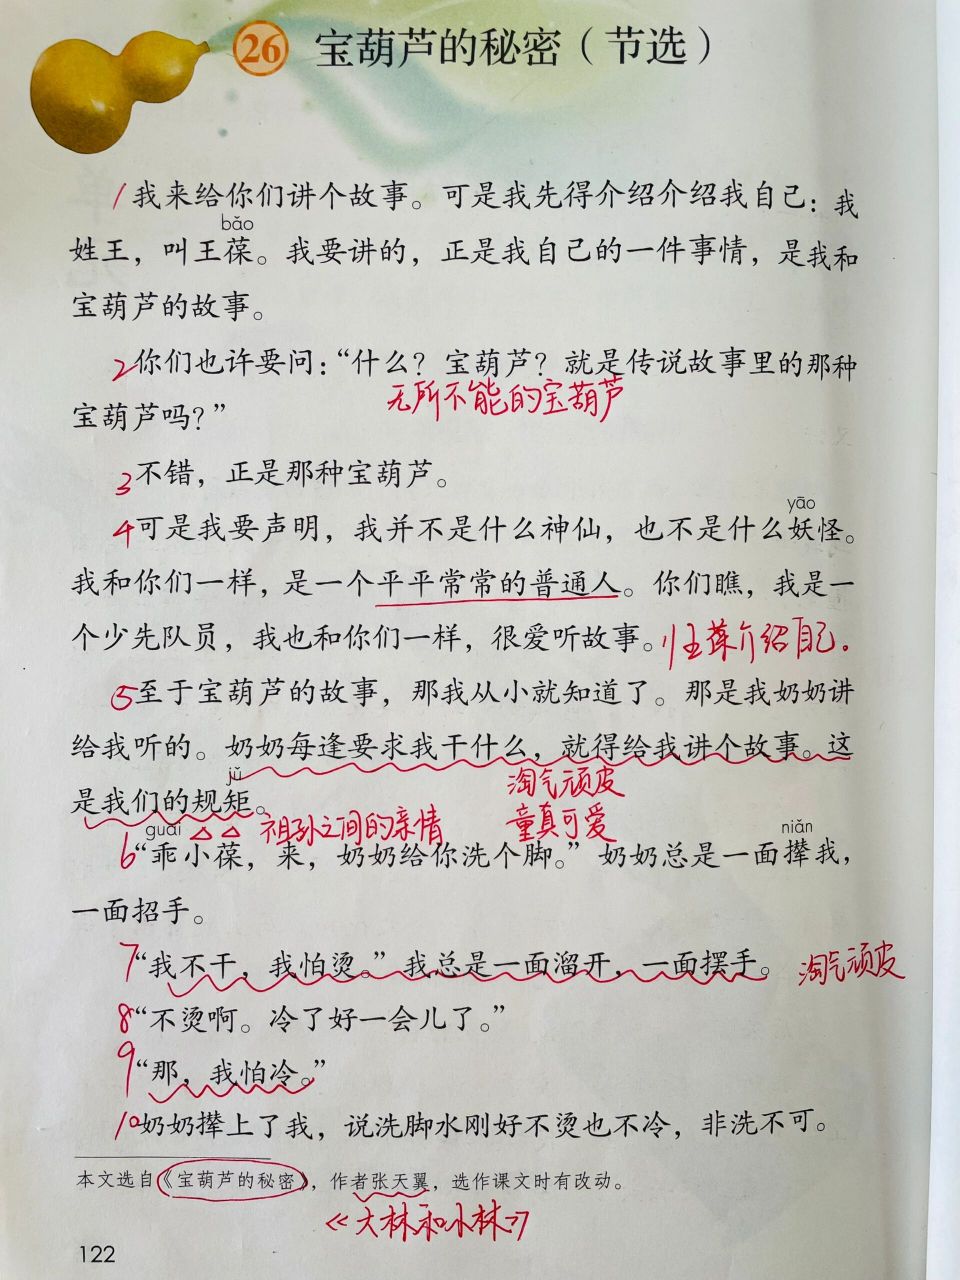 26 宝葫芦的秘密（节选）
1 我来给你们讲个故事。可是我先得介绍介绍我自己：我
bǎo
姓王，叫王葆。我要讲的，正是我自己的一件事情，是我和
宝葫芦的故事。
2 你们也许要问：“什么？宝葫芦？就是传说故事里的那种
无所不能的宝葫芦
宝葫芦吗？”
3 不错，正是那种宝葫芦。
yāo
4 可是我要声明，我并不是什么神仙，也不是什么妖怪。
我和你们一样，是一个平平常常的普通人。你们瞧，我是一
个少先队员，我也和你们一样，很爱听故事。王葆介绍自己.
5 至于宝葫芦的故事，那我从小就知道了。那是我奶奶讲
给我听的。奶奶每逢要求我干什么，就得给我讲个故事。这
jǔ
淘气顽皮
是我们的规矩。
祖孙之间的亲情 童真可爱
guāi niǎn
6 “乖小葆，来，奶奶给你洗个脚。”奶奶总是一面撵我，
一面招手。
7 “我不干，我怕烫。”我总是一面溜开，一面摆手。 淘气顽皮
8 “不烫啊。冷了好一会儿了。”
9 “那，我怕冷。”
10 奶奶撵上了我，说洗脚水刚好不烫也不冷，非洗不可。
本文选自《宝葫芦的秘密》，作者张天翼，选作课文时有改动。
《大林和小林》
122